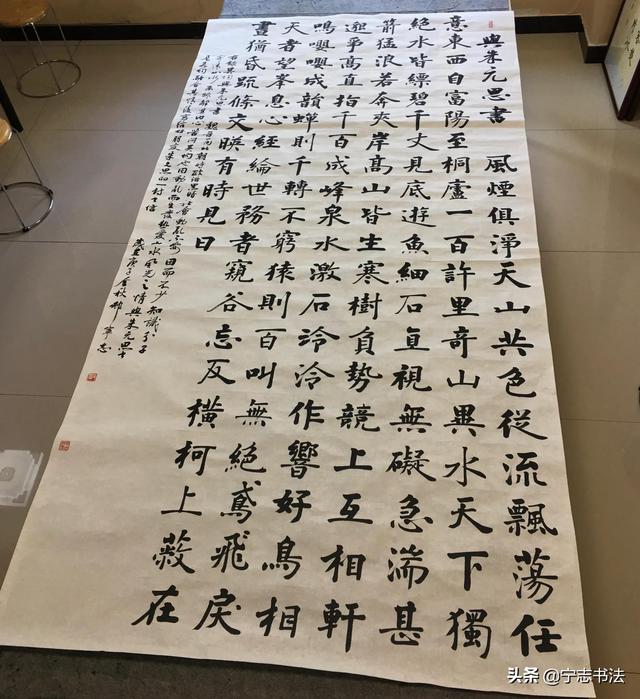 與朱元思書 風煙俱淨天山共色從流飄蕩任
意東西自富陽至桐廬一百許里奇山異水天下獨
絕水皆縹碧千丈見底遊魚細石直視無礙急湍甚
箭猛浪若奔夾岸高山皆生寒樹負勢競上互相軒
邈爭高直指千百成峰泉水激石泠泠作響好鳥相
鳴嚶嚶成韻蟬則千轉不窮猿則百叫無絕鳶飛戾
天者望峯息心經綸世務者窺谷忘反橫柯上蔽在
晝猶昏疏條交暎有時見日
因而不少知識分子
山水風光之情與朱元思書
是吳均
朱元思的一封書信
歲在庚子金秋 寧志
头条 @宁志书法